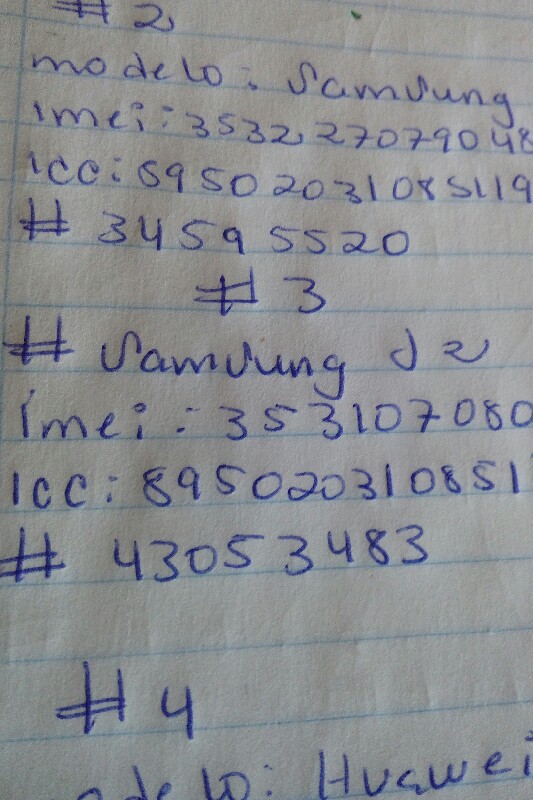 # 2
modelo: Samsung
imei: 353227079048
ICC: 89502031085119
# 34595520
# 3
# Samsung J2
imei: 353107080
ICC: 89502031085 1
# 43053483
# 4
odelo: Huawei